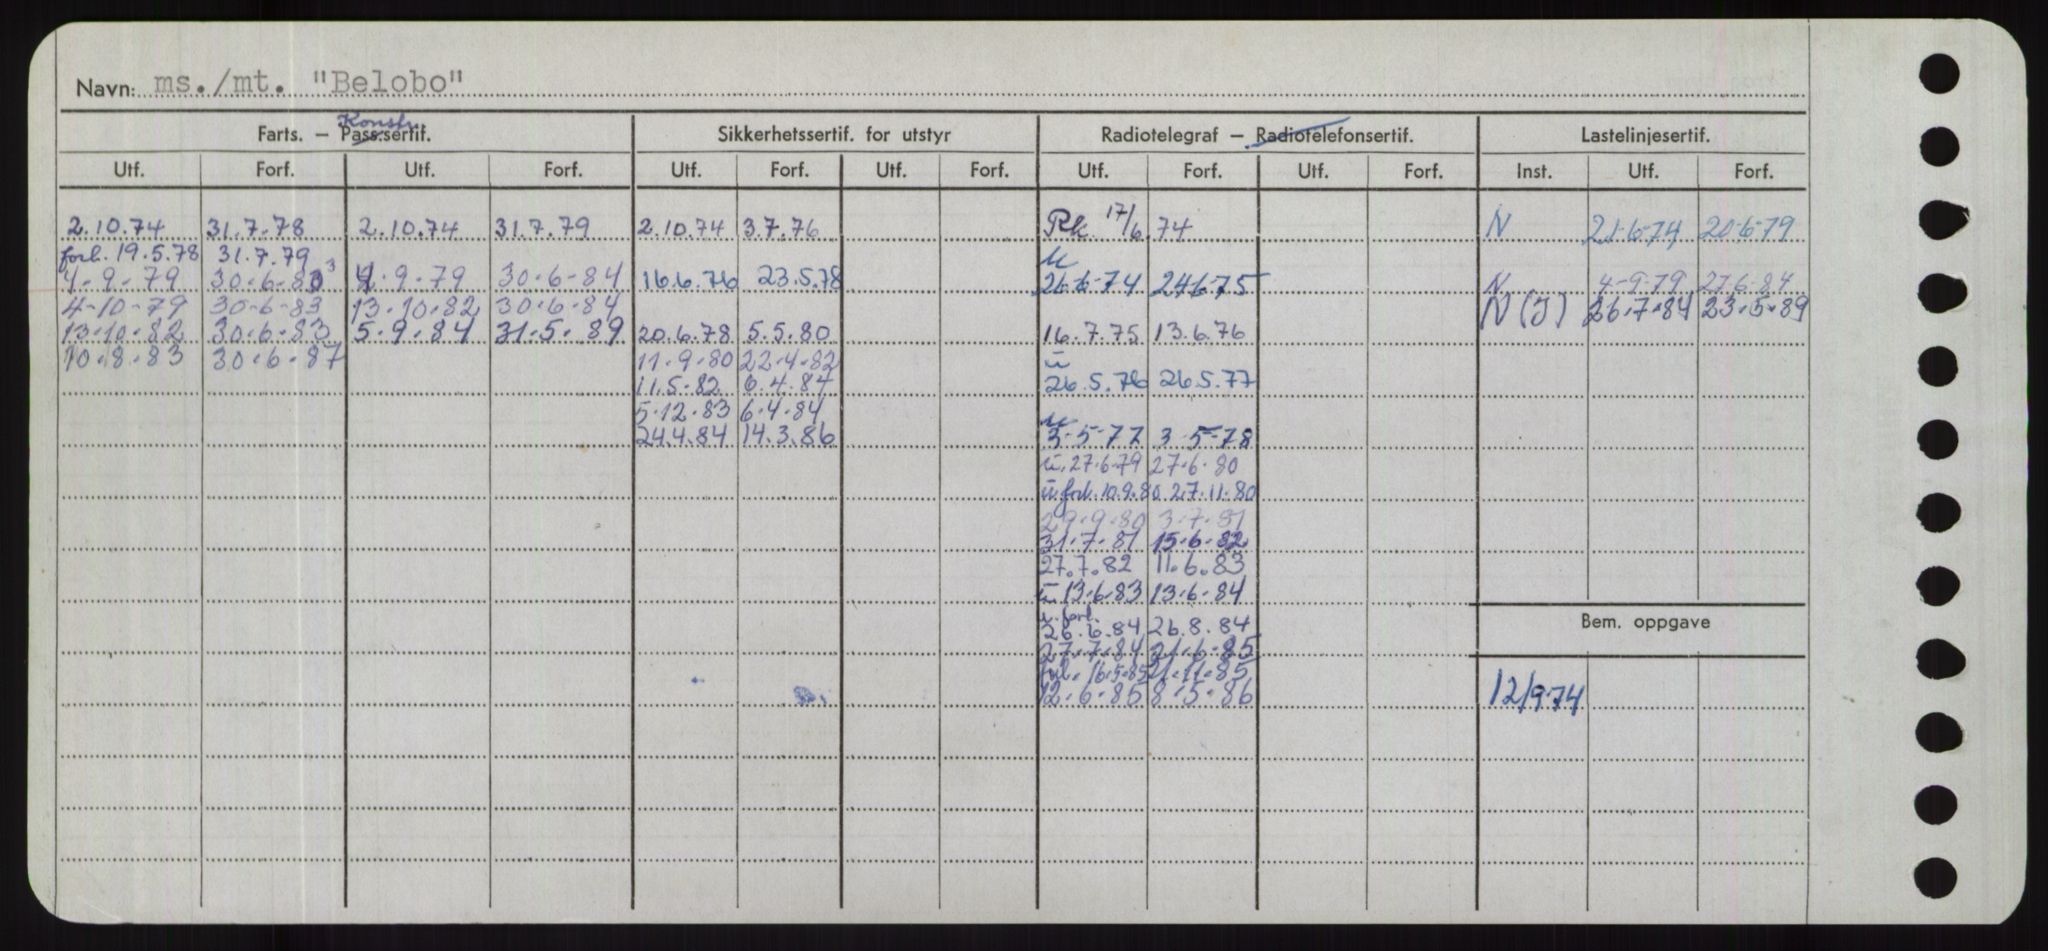 Navn: ms./mt. "Belobo"
Konstr.
Farts. – Pass.sertif. Sikkerhetssertif. for utstyr Radiotelegraf – Radiotelefonsertif. Lastelinjesertif.
Utf. Forf. Utf. Forf. Utf. Forf. Utf. Forf. Utf. Forf. Utf. Forf. Inst. Utf. Forf.
2.10.74 31.7.78 2.10.74 31.7.79 2.10.74 3.7.76 Rk. 17/6.74 N 21-6-74 20-6-79
forl. 19.5.78 31.7.79 u
4-9-79 30-6-83 4-9-79 30-6-84 16.6.76 23.5.78 26-6-74 24-6-75 N 4-9-79 27-6-84
4-10-79 30-6-83 13.10.82 30.6.84 N (J) 26.7.84 23.5.89
13.10.82 30.6.83 5.9.84 31.5.89 20.6.78 5.5.80 16.7.75 13.6.76
10.8.83 30.6.87 11.9.80 22.4.82 u
11.5.82 6.4.84 26.5.76 26.5.77
5.12.83 6.4.84 u
24.4.84 14.3.86 3-5-77 3-5-78
u. 27.6.79 27.6.80
u forl. 10.9.80 27.11.80
29.9.80 3.7.81
31.7.81 15.6.82
27.7.82 11.6.83
u 13.6.83 13.6.84
u. forl.
26.6.84 26.8.84
Bem. oppgave
27.7.84 21.6.85
forl. 16.5.85 21.11.85
12.6.85 8.5.86 12/9-74